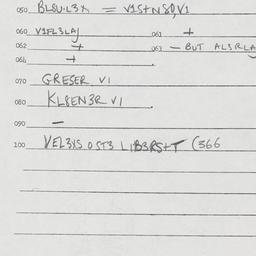 050 BL8U·L3X = V1S+N8Ø,V1
060 V1FL3LAJ 061 +
062 + 063 — BUT AL3RLA
064 +
070 GRESER V1
080 KL8EN3R V1
090 —
100 VEL3XS OST3 L1B3RS+T (366